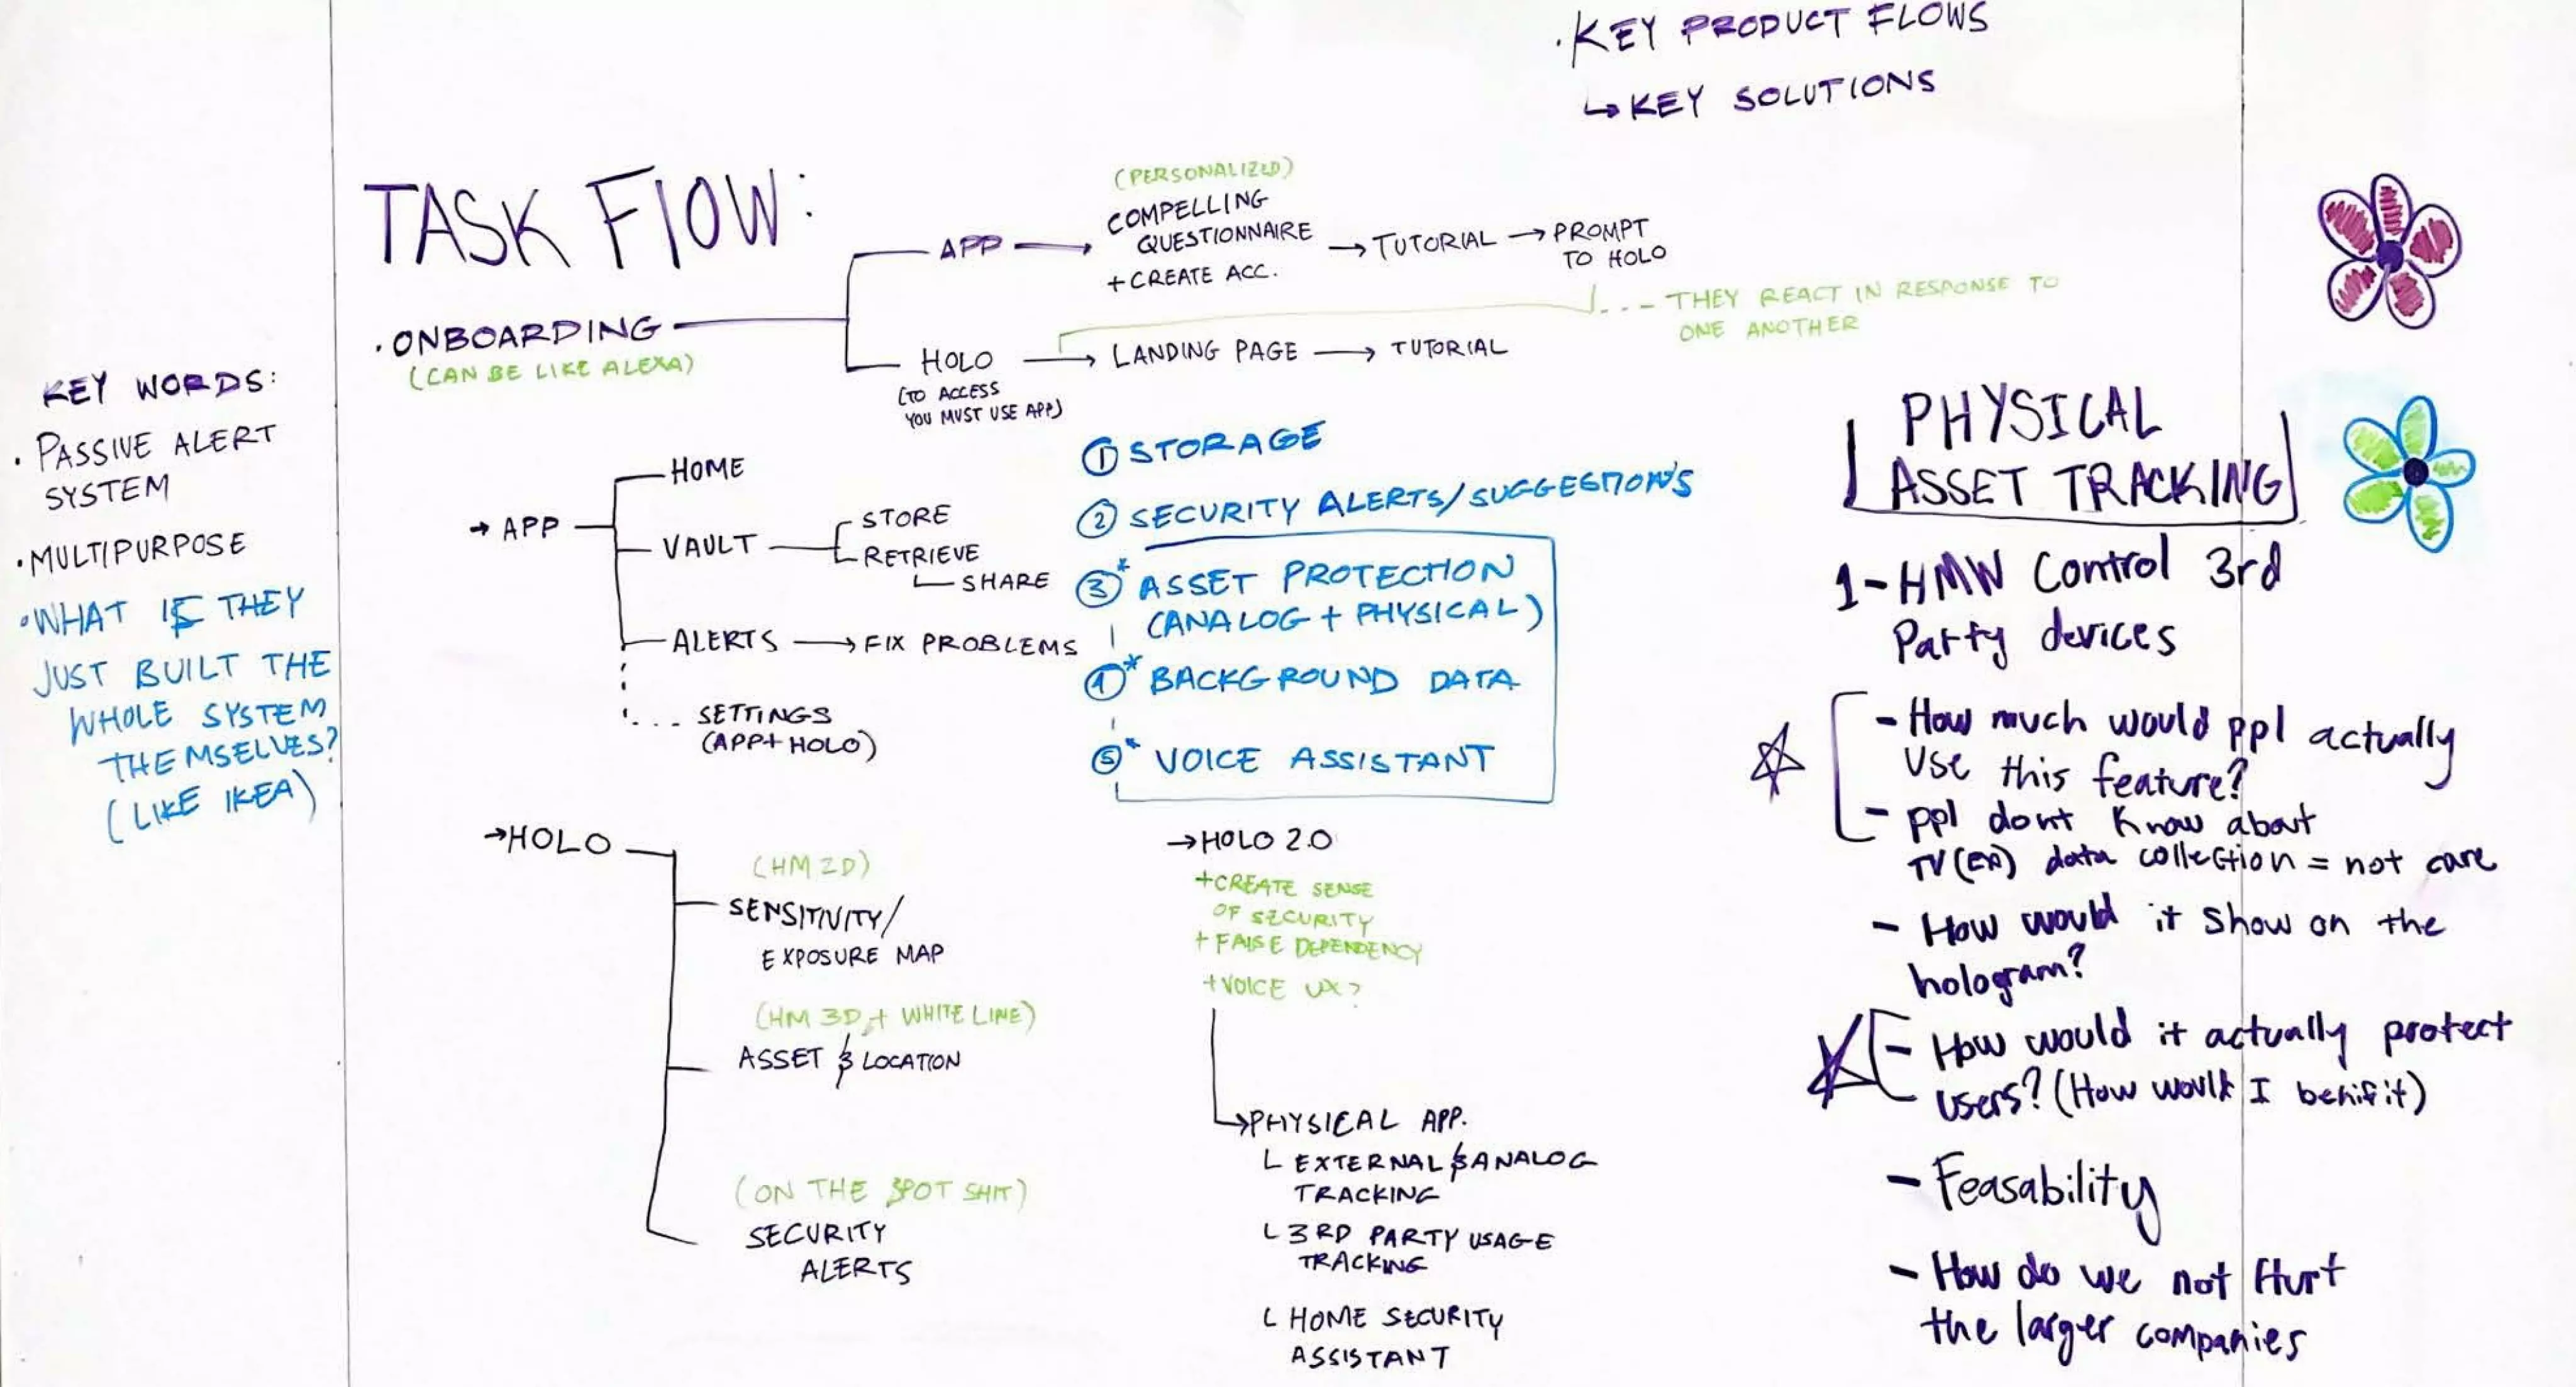 · KEY PRODUCT FLOWS
↳ KEY SOLUTIONS
TASK FlOW:
· ONBOARDING
(CAN BE LIKE ALEXA)
APP →
(PERSONALIZED)
COMPELLING
QUESTIONNAIRE
+ CREATE ACC.
→ TUTORIAL → PROMPT
TO HOLO
... - THEY REACT IN RESPONSE TO
ONE ANOTHER
HOLO → LANDING PAGE → TUTORIAL
(TO ACCESS
YOU MUST USE APP)
KEY WORDS:
· PASSIVE ALERT
SYSTEM
· MULTIPURPOSE
· WHAT IF THEY
JUST BUILT THE
WHOLE SYSTEM
THEMSELVES?
(LIKE IKEA)
→ APP
HOME
VAULT
STORE
RETRIEVE
SHARE
ALERTS → FIX PROBLEMS
SETTINGS
(APP + HOLO)
① STORAGE
② SECURITY ALERTS/SUGGESTION'S
③* ASSET PROTECTION
(ANALOG + PHYSICAL)
④* BACKGROUND DATA
⑤* VOICE ASSISTANT
→ HOLO
(HM 2D)
SENSITIVITY/
EXPOSURE MAP
(HM 3D + WHITE LINE)
ASSET & LOCATION
(ON THE SPOT SHIT)
SECURITY
ALERTS
→ HOLO 2.0
+ CREATE SENSE
OF SECURITY
+ FALSE DEPENDENCY
+ VOICE UX?
→ PHYSICAL APP.
EXTERNAL & ANALOG
TRACKING
3RD PARTY USAGE
TRACKING
HOME SECURITY
ASSISTANT
PHYSICAL
ASSET TRACKING
1- HMW Control 3rd
Party devices
- How much would ppl actually
Use this feature?
- ppl dont Know about
TV (EX) data collection = not care
- How would it show on the
hologram?
- How would it actually protect
users? (How would I benifit)
- Feasability
- How do we not Hurt
the larger companies